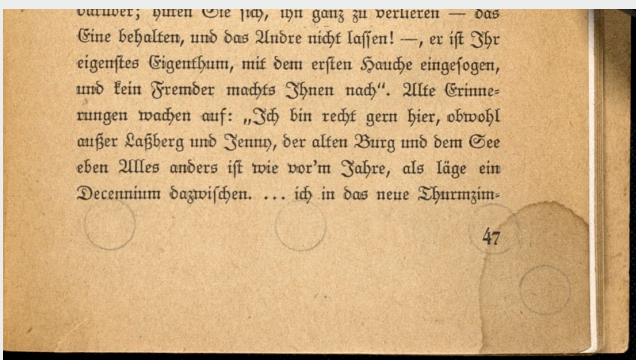 darüber; hüten Sie sich, ihn ganz zu verlieren — das
Eine behalten, und das Andre nicht lassen! —, er ist Ihr
eigenstes Eigenthum, mit dem ersten Hauche eingesogen,
und kein Fremder machts Ihnen nach“. Alte Erinne-
rungen wachen auf: „Ich bin recht gern hier, obwohl
außer Laßberg und Jenny, der alten Burg und dem See
eben Alles anders ist wie vor'm Jahre, als läge ein
Decennium dazwischen. ... ich in das neue Thurmzim-
47